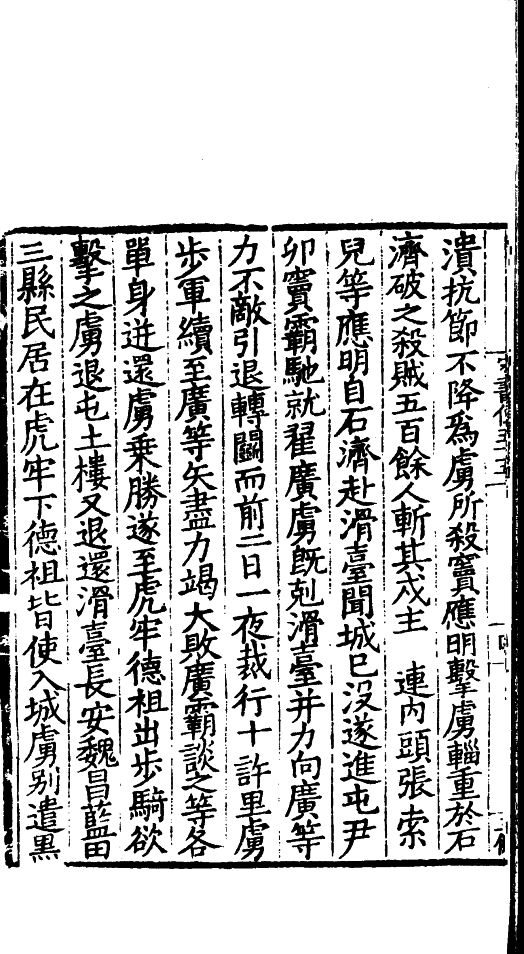 潰抗節不降爲虜所殺竇應明擊虜輜重於石
濟破之殺賊五百餘人斬其戍主　連內頭張索
兒等應明自石濟赴滑臺聞城已没遂進屯尹
卯竇霸馳就翟廣虜既剋滑臺并力向廣等
力不敵引退轉鬬而前二日一夜裁行十許里虜
步軍續至廣等矢盡力竭大敗廣霸談之等各
單身迸還虜乗勝遂至虎牢德祖出步騎欲
擊之虜退屯土樓又退還滑臺長安魏昌藍田
三縣民居在虎牢下德祖皆使入城虜别遣黑